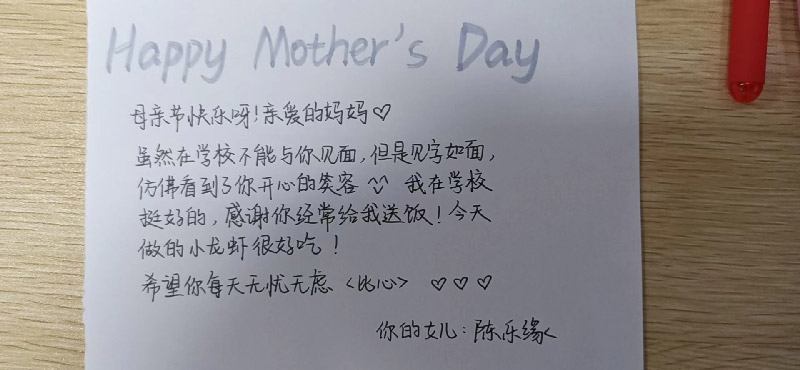 Happy Mother's Day
母亲节快乐呀!亲爱的妈妈♡
虽然在学校不能与你见面,但是见字如面,
仿佛看到了你开心的笑容 我在学校
挺好的,感谢你经常给我送饭!今天
做的小龙虾很好吃!
希望你每天无忧无虑〈比心〉 ♡♡♡
你的女儿:陈乐缘